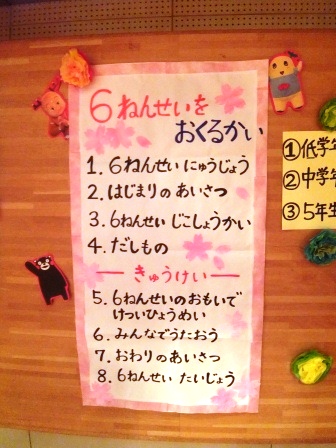 6ねんせいを
おくるかい
1. 6ねんせい にゅうじょう
2. はじまりの あいさつ
3. 6ねんせい じこしょうかい
4. だしもの
きゅうけい
5. 6ねんせいのおもいで
けついひょうめい
6. みんなでうたおう
7. おわりのあいさつ
8. 6ねんせい たいじょう
①低学年
②中学年
③5年生